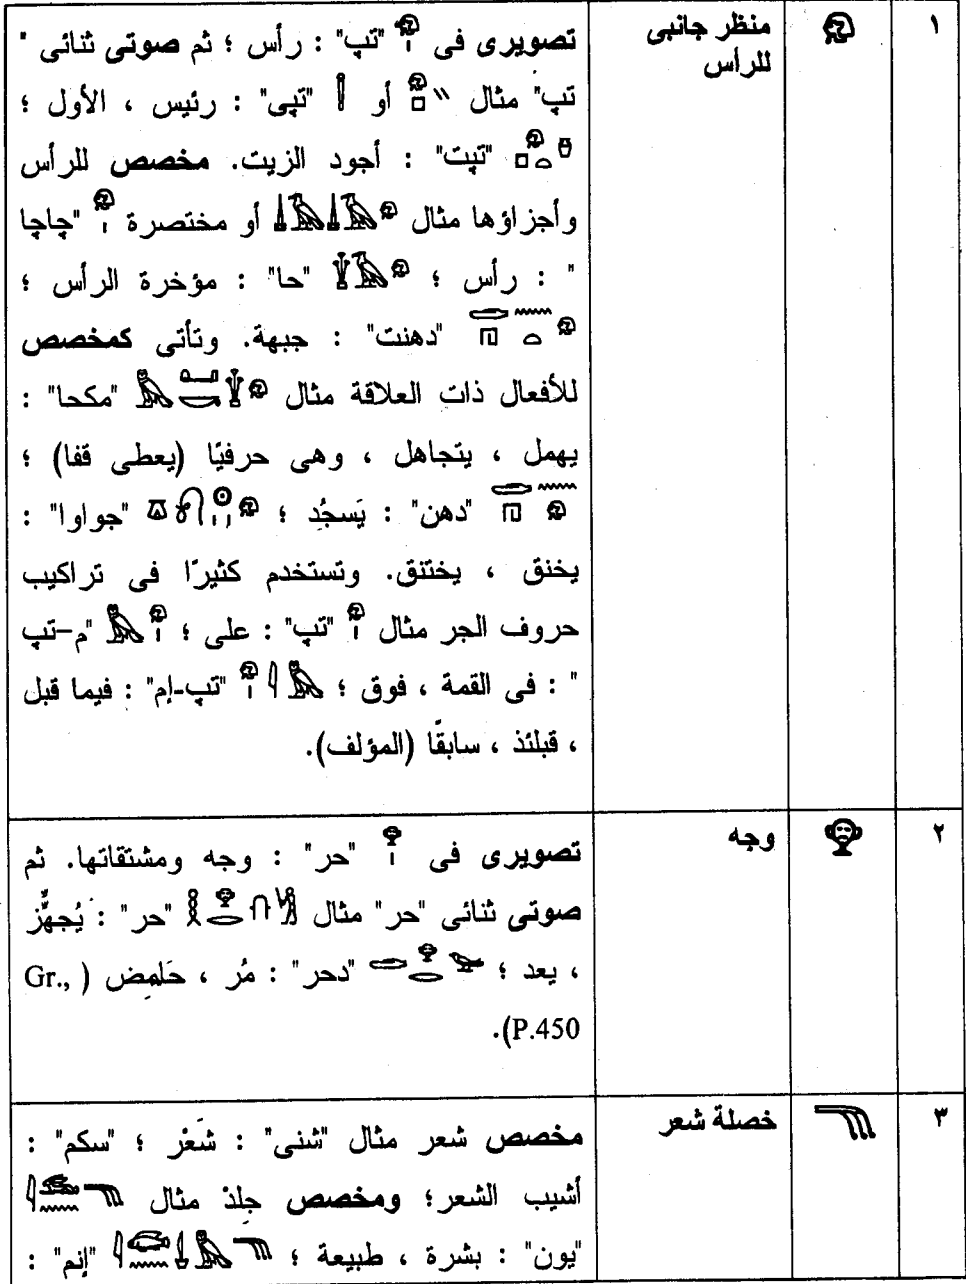 ١ 𓁶 منظر جانبى للراس
تصويرى فى 𓁶𓏤 "تپ" : رأس ؛ ثم صوتى ثنائى "
تپ" مثال 𓁶𓊪𓏭 أو "تپى" : رئيس ، الأول ؛
"تپت" : أجود الزيت. مخصص للرأس
وأجزاؤها مثال 𓍑𓄿𓍑𓄿𓁶 أو مختصرة 𓁶𓏤 "چاچا
" : رأس ؛ "حا" : مؤخرة الرأس ؛
"دهنت" : جبهة. وتأتى كمخصص
للأفعال ذات العلاقة مثال "مكحا" :
يهمل ، يتجاهل ، وهى حرفيًا (يعطى قفا) ؛
"دهن" : يَسجُد ؛ "جواوا" :
يخنق ، يختنق. وتستخدم كثيرًا فى تراكيب
حروف الجر مثال 𓁶𓏤 "تپ" : على ؛ 𓅓𓁶𓏤 "م-تپ
" : فى القمة ، فوق ؛ 𓁶𓏤𓇋𓅓 "تپ-إم" : فيما قبل
، قبلئذ ، سابقًا (المؤلف).
٢ 𓁷 وجه
تصويرى فى 𓁷𓏤 "حر" : وجه ومشتقاتها. ثم
صوتى ثنائى "حر" مثال "حر" : يُجهِّز
، يعد ؛ 𓂧𓁷𓂋𓅪 "دحر" : مُر ، حَامِض (Gr.,
P.450).
٣ 𓁸 خصلة شعر
مخصص شعر مثال "شنى" : شَعْر ؛ "سكم" :
أشيب الشعر؛ ومخصص جلد مثال
"يون" : بشرة ، طبيعة ؛ "إنم" :